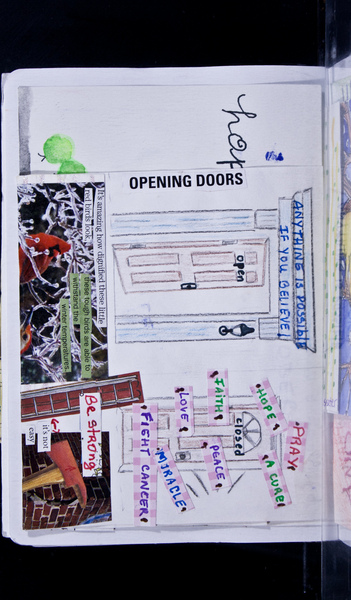 OPENING DOORS
ANYTHING IS POSSIBLE
IF YOU BELIEVE!
open
It's amazing how dignified these little
red birds look.
these tough birds are able to
withstand the
winter temperatures.
PRAY
HOPE
A CURE
closed
FAITH
PEACE
LOVE
MIRACLE
FIGHT CANCER
Be strong
it's not
easy